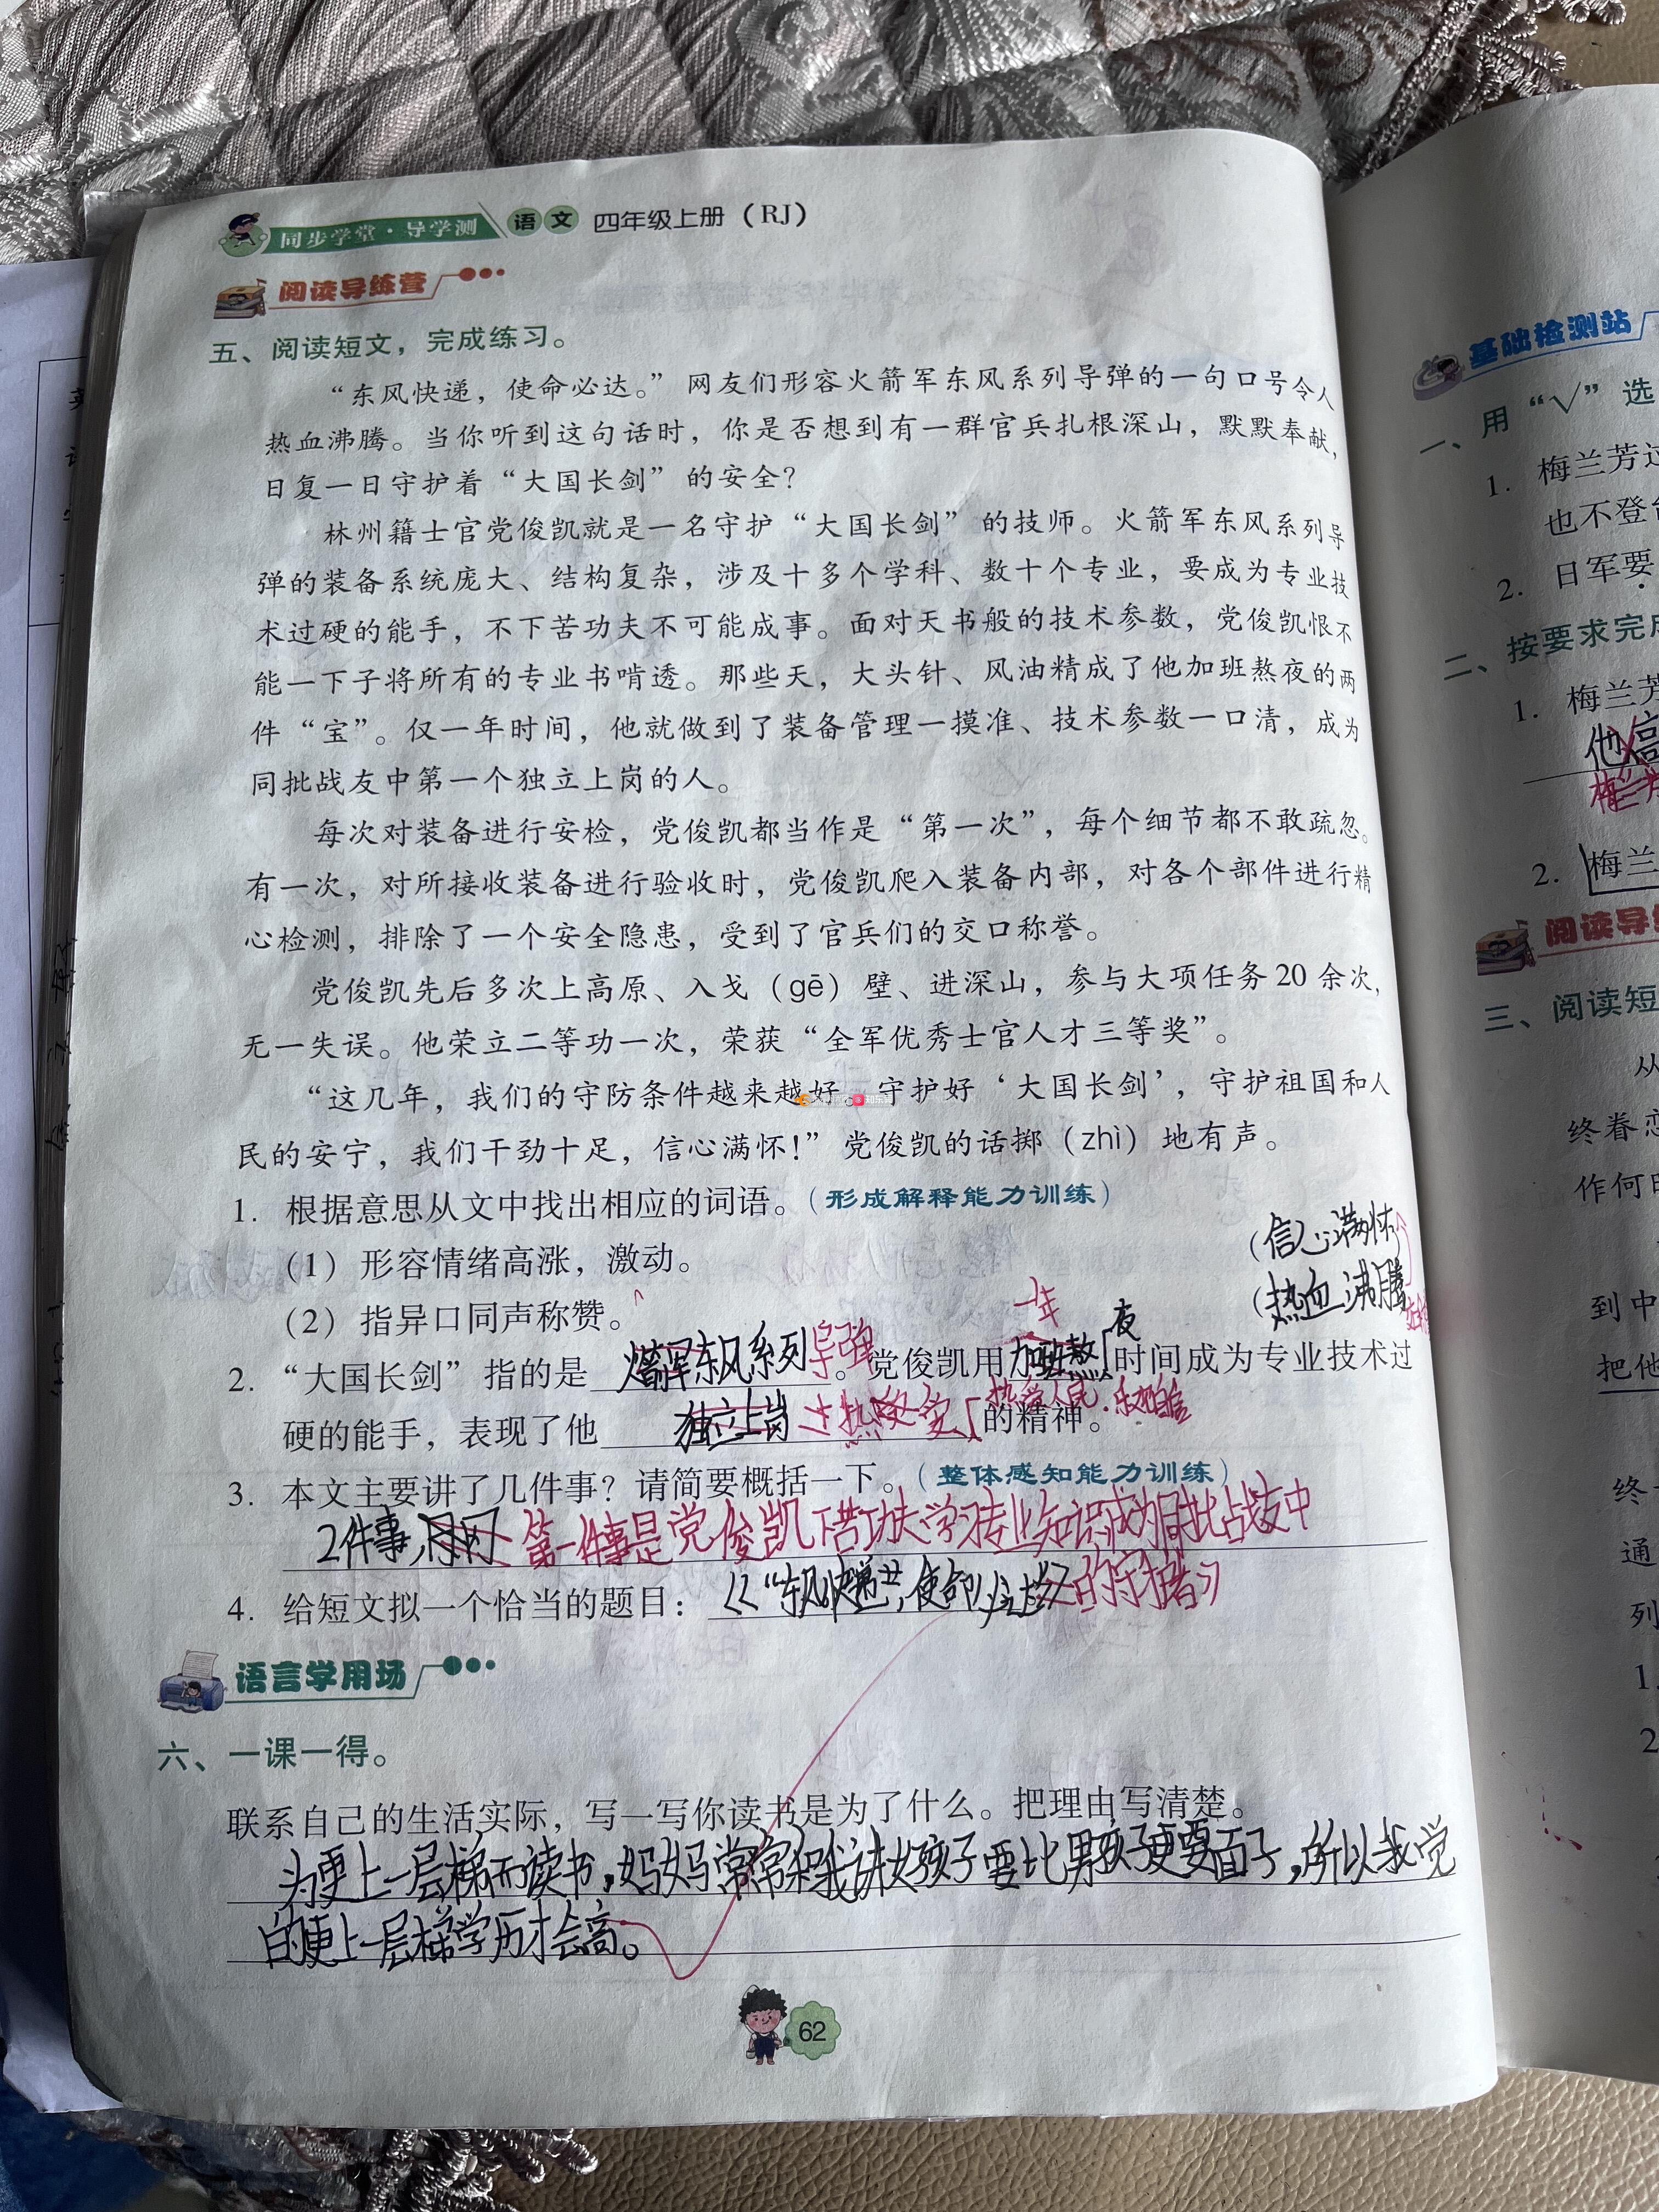 同步学堂·导学测 语文 四年级上册（RJ）
阅读导练营
五、阅读短文，完成练习。
“东风快递，使命必达。”网友们形容火箭军东风系列导弹的一句口号令人
热血沸腾。当你听到这句话时，你是否想到有一群官兵扎根深山，默默奉献，
日复一日守护着“大国长剑”的安全？
林州籍士官党俊凯就是一名守护“大国长剑”的技师。火箭军东风系列导
弹的装备系统庞大、结构复杂，涉及十多个学科、数十个专业，要成为专业技
术过硬的能手，不下苦功夫不可能成事。面对天书般的技术参数，党俊凯恨不
能一下子将所有的专业书啃透。那些天，大头针、风油精成了他加班熬夜的两
件“宝”。仅一年时间，他就做到了装备管理一摸准、技术参数一口清，成为
同批战友中第一个独立上岗的人。
每次对装备进行安检，党俊凯都当作是“第一次”，每个细节都不敢疏忽。
有一次，对所接收装备进行验收时，党俊凯爬入装备内部，对各个部件进行精
心检测，排除了一个安全隐患，受到了官兵们的交口称誉。
党俊凯先后多次上高原、入戈（gē）壁、进深山，参与大项任务20余次，
无一失误。他荣立二等功一次，荣获“全军优秀士官人才三等奖”。
“这几年，我们的守防条件越来越好。守护好‘大国长剑’，守护祖国和人
民的安宁，我们干劲十足，信心满怀！”党俊凯的话掷（zhì）地有声。
1. 根据意思从文中找出相应的词语。（形成解释能力训练）
（1）形容情绪高涨，激动。（信心满怀）
（2）指异口同声称赞。（热血沸腾
一年 夜
2. “大国长剑”指的是 火箭军东风系列导弹。党俊凯用加班熬时间成为专业技术过
硬的能手，表现了他 独立上岗 的精神。
热爱人民
3. 本文主要讲了几件事？请简要概括一下。（整体感知能力训练）
2件事， 第一件事是党俊凯下苦功夫学习专业知识成为同批战友中
4. 给短文拟一个恰当的题目：《“东风快递”，使命必达》的守护者》
语言学用场
六、一课一得。
联系自己的生活实际，写一写你读书是为了什么。把理由写清楚。
为更上一层梯而读书，妈妈常常和我讲女孩子要比男孩子更要面子，所以我觉
的更上一层梯学历才会高。
62
基础检测站
一、用“√”选
1. 梅兰芳过
也不登台
2. 日军要
二、按要求完成
1. 梅兰芳
他
2. 梅兰
阅读导练
三、阅读短
从
终眷恋
作何
到中
把他
终
通
列
1.
2